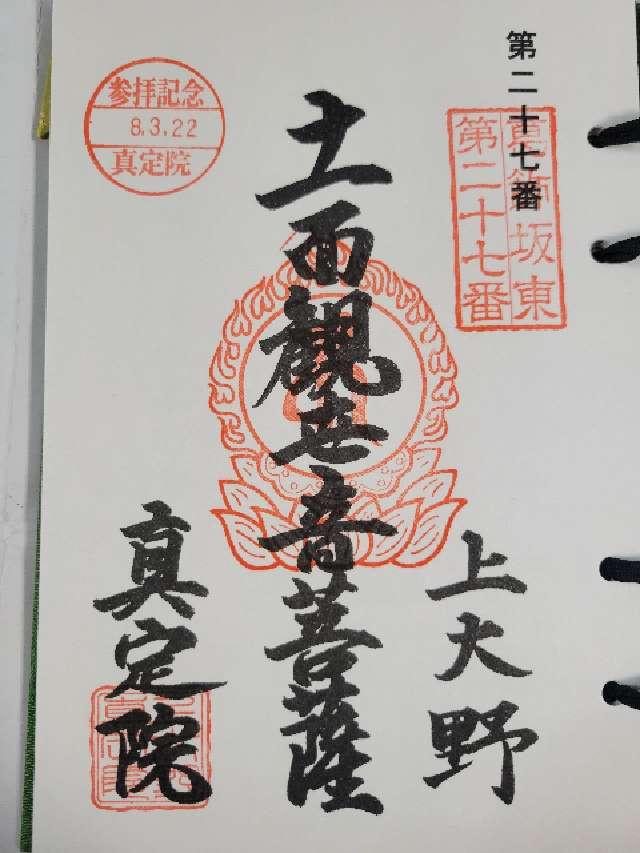 第二十七番
真鍋坂東
第二十七番
参拝記念
8.3.22
真定院
上大野
十一面観世音菩薩
真定院